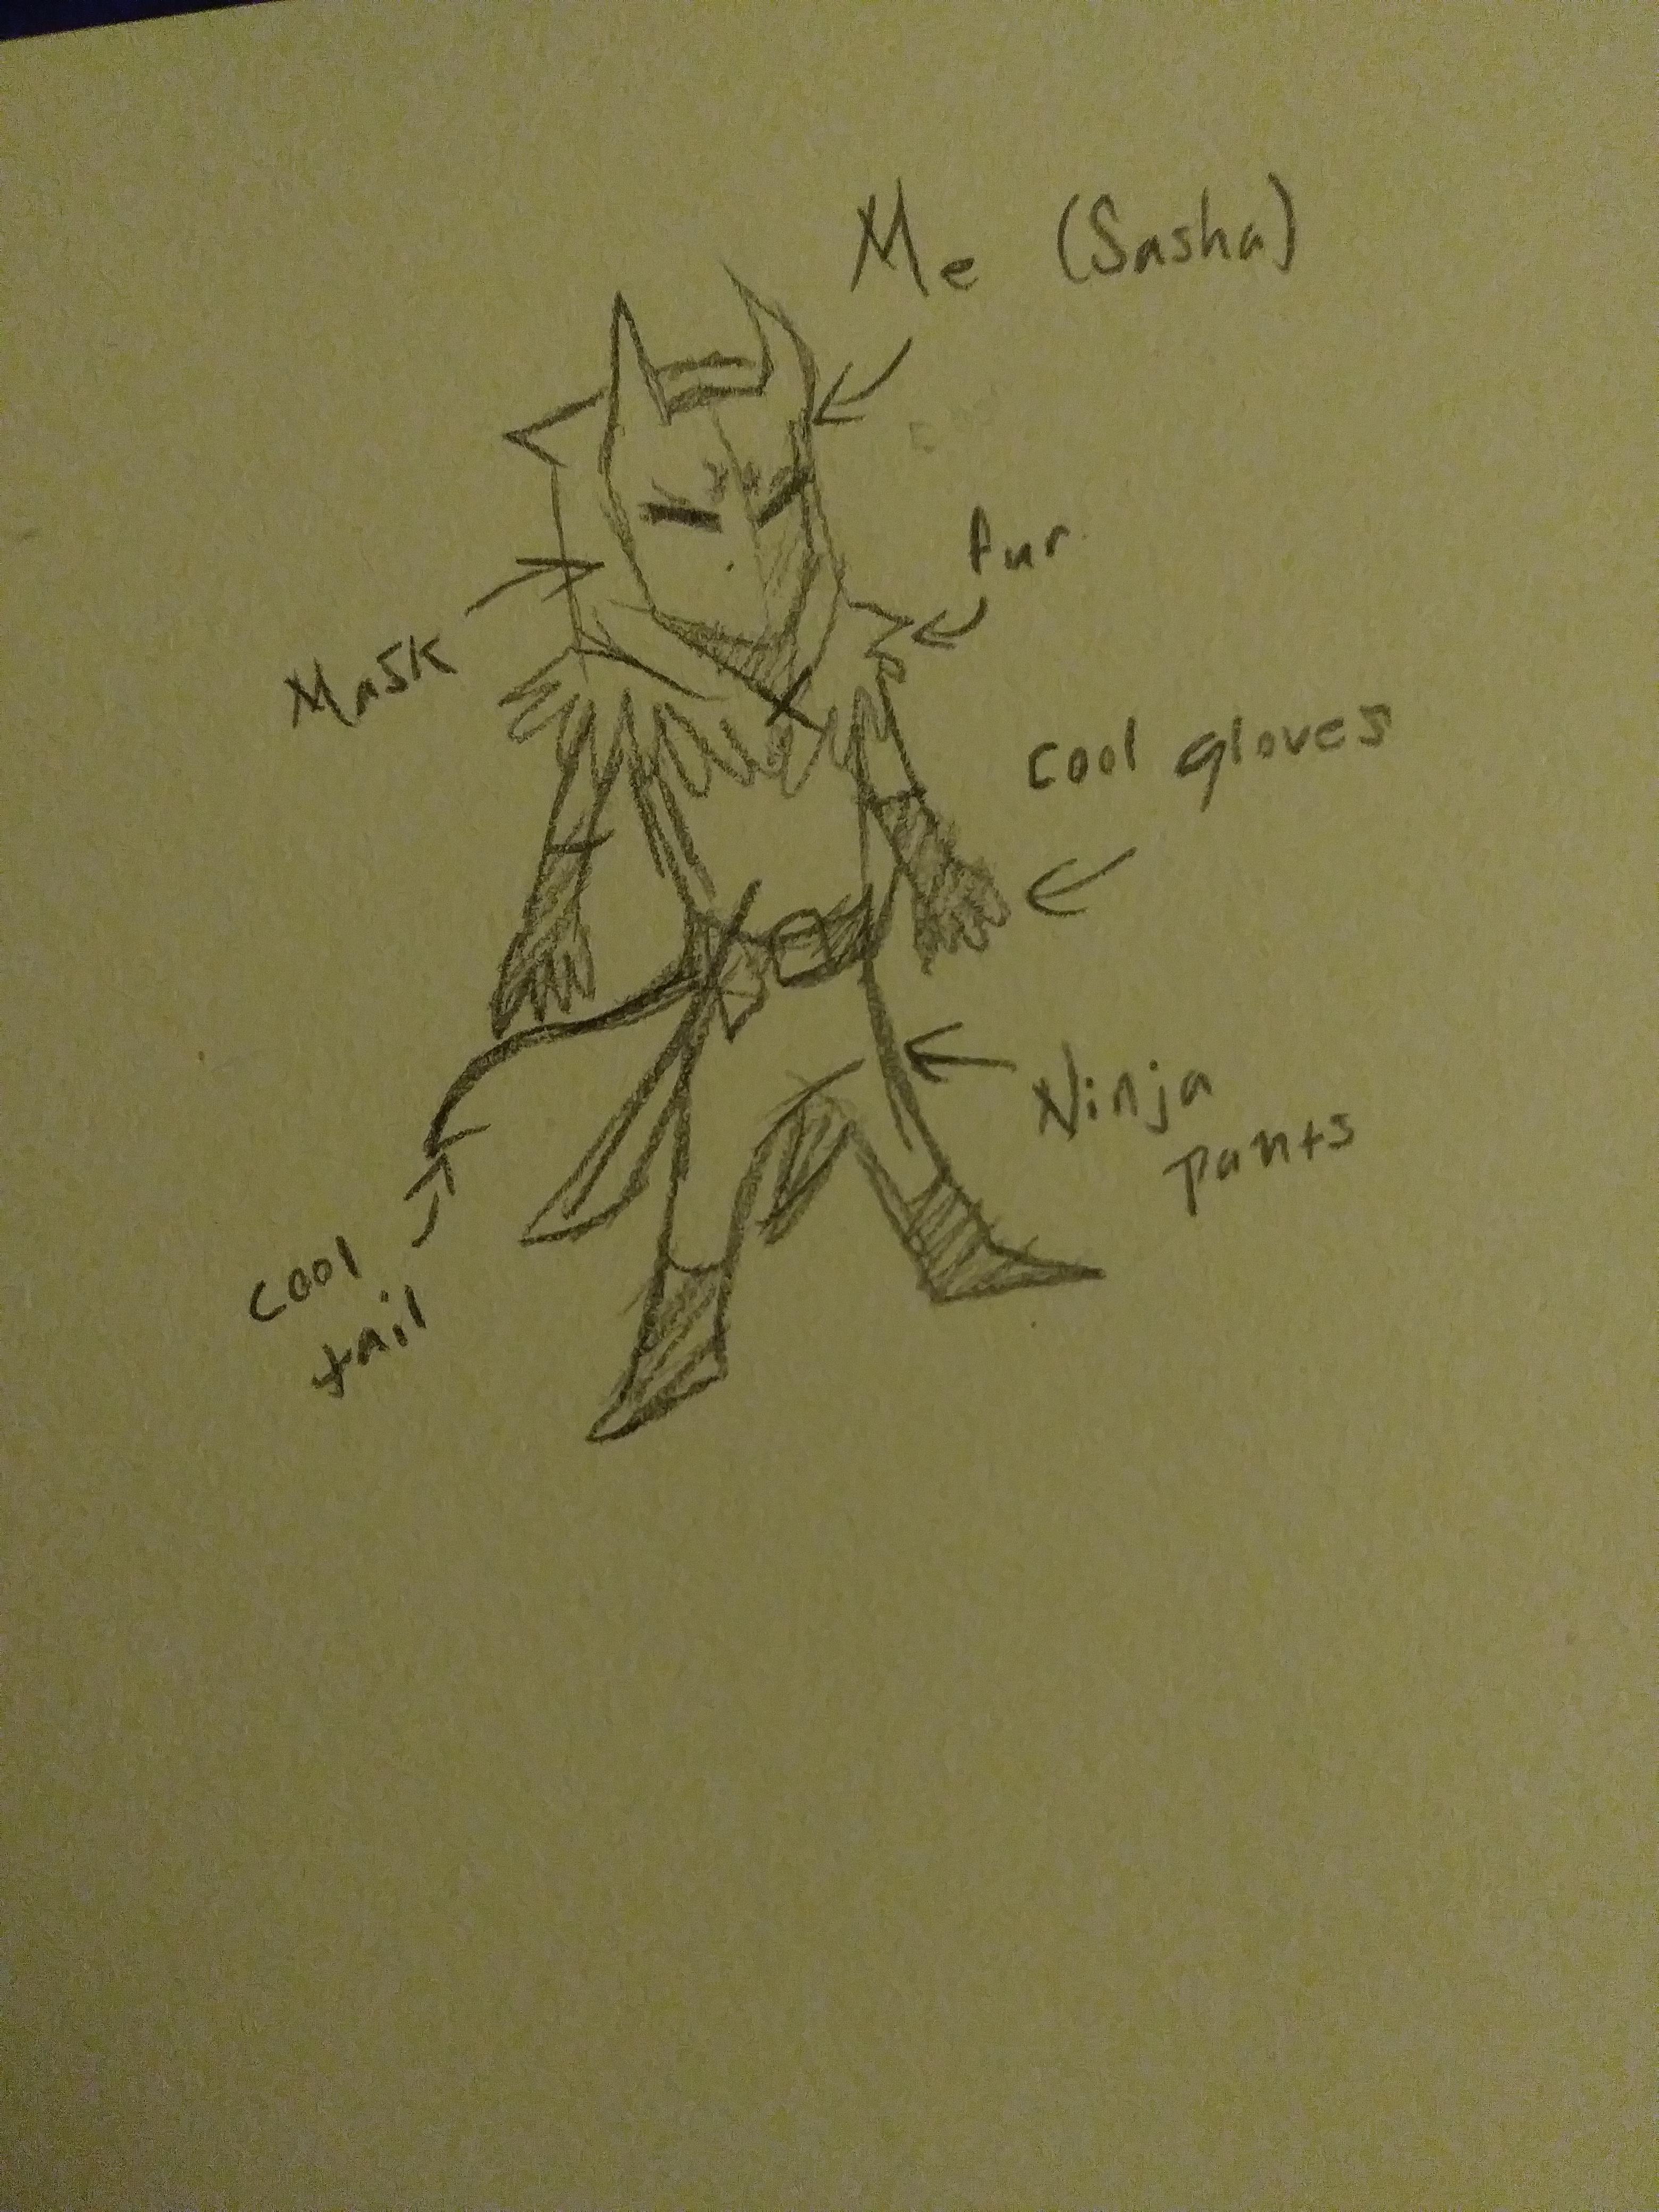 Me (Sasha)
fur
Mask
cool gloves
Ninja
pants
cool
tail